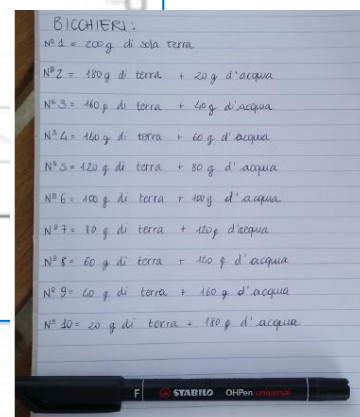 BICCHIERI:
N° 1 = 200 g di sola terra
N° 2 = 180 g di terra + 20 g d'acqua
N° 3 = 160 g di terra + 40 g d'acqua
N° 4 = 140 g di terra + 60 g d'acqua
N° 5 = 120 g di terra + 80 g d'acqua
N° 6 = 100 g di terra + 100 g d'acqua
N° 7 = 80 g di terra + 120 g d'acqua
N° 8 = 60 g di terra + 140 g d'acqua
N° 9 = 40 g di terra + 160 g d'acqua
N° 10 = 20 g di terra + 180 g d'acqua
F STABILO OHPen universal